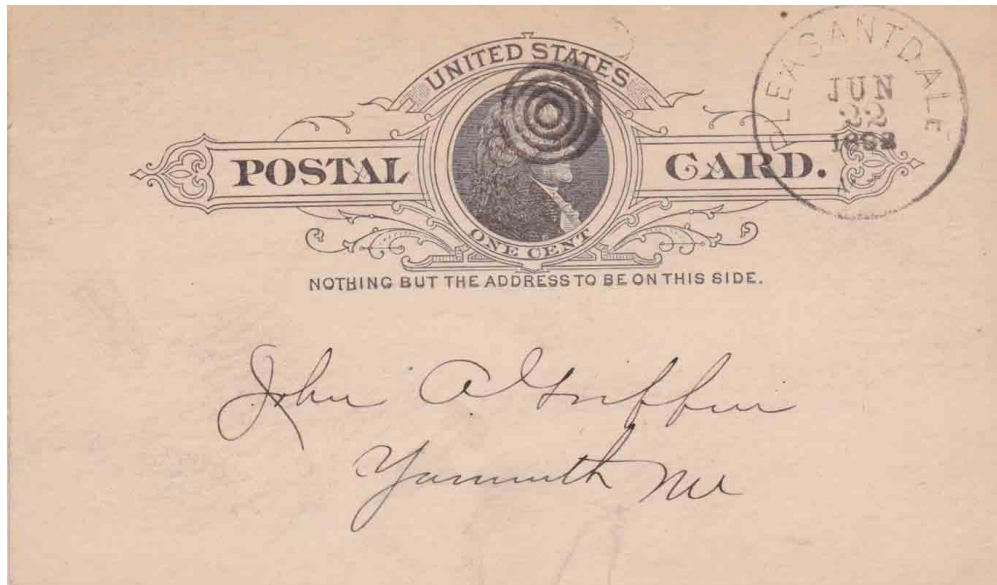 UNITED STATES
POSTAL CARD.
ONE CENT
NOTHING BUT THE ADDRESS TO BE ON THIS SIDE.
PLEASANTDALE
JUN
22
John A Griffin
Yarmouth Me